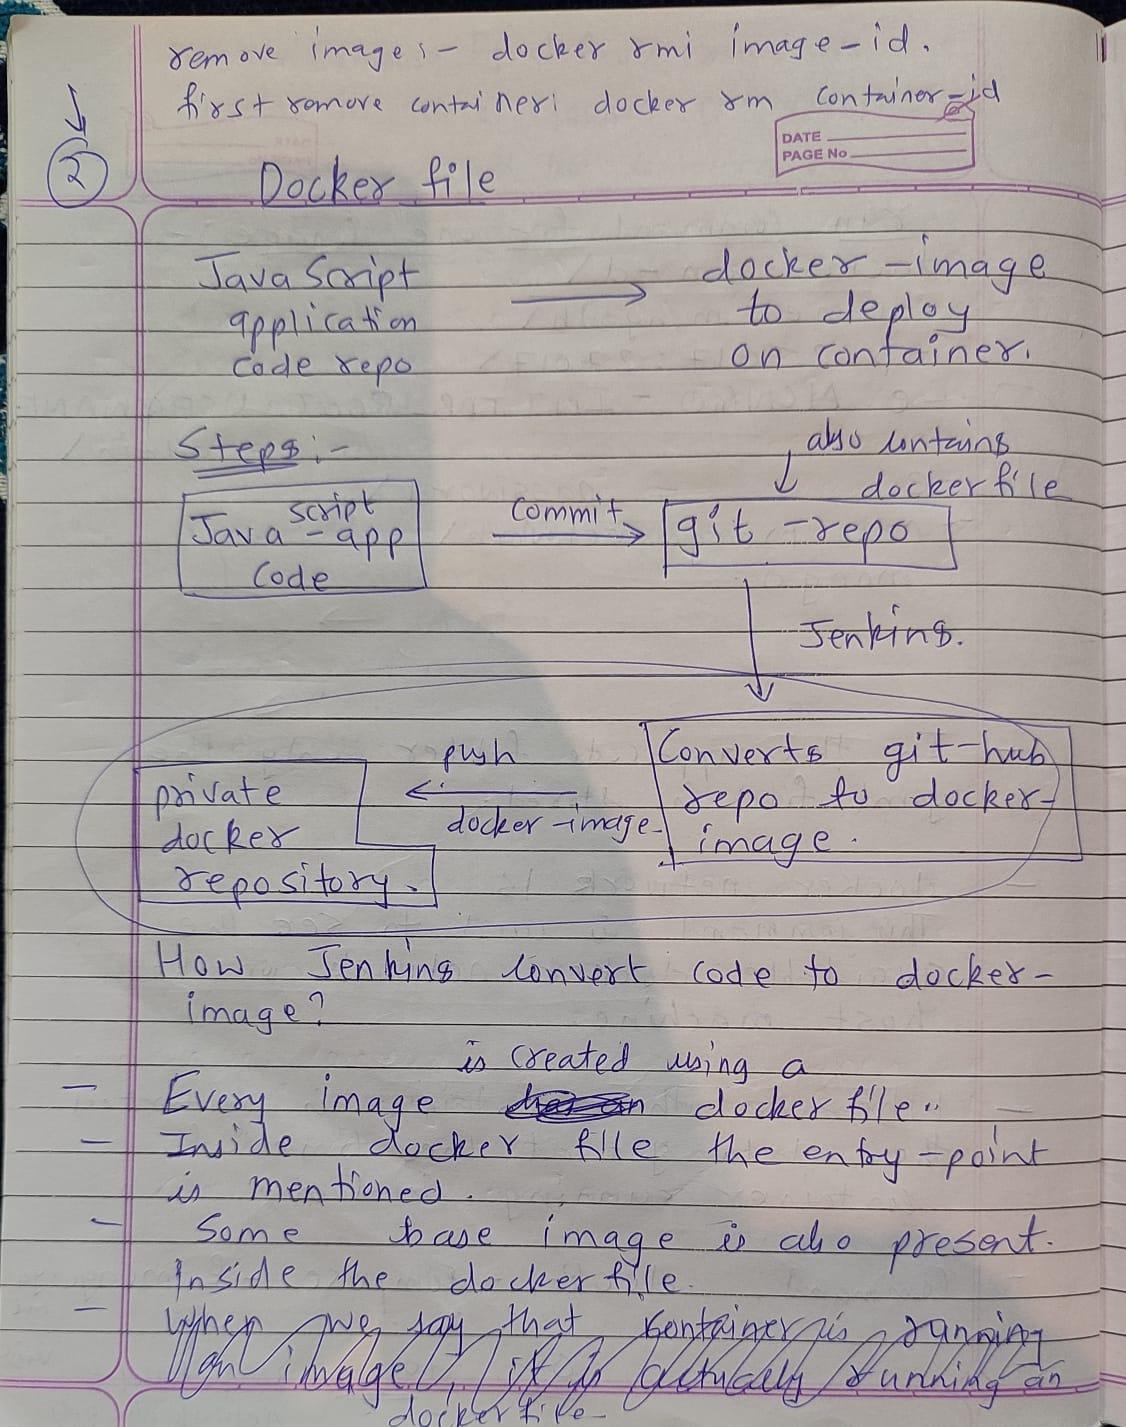 remove image :- docker rmi image-id.
first remove container: docker rm container-id
DATE
PAGE No
2
Docker file
JavaScript
application
code repo
docker-image
to deploy
on container.
Steps :-
also contains
dockerfile
script
Java-app
code
commit
git-repo
Jenkins.
Converts git-hub
repo to docker-
image.
push
docker-image
private
docker
repository.
How Jenkins convert code to docker-
image?
is created using a
- Every image dockerfile.
- Inside docker file the entry-point
is mentioned.
- Some base image is also present.
Inside the dockerfile.
- When we say that container is running
an image, it is actually running an
dockerfile